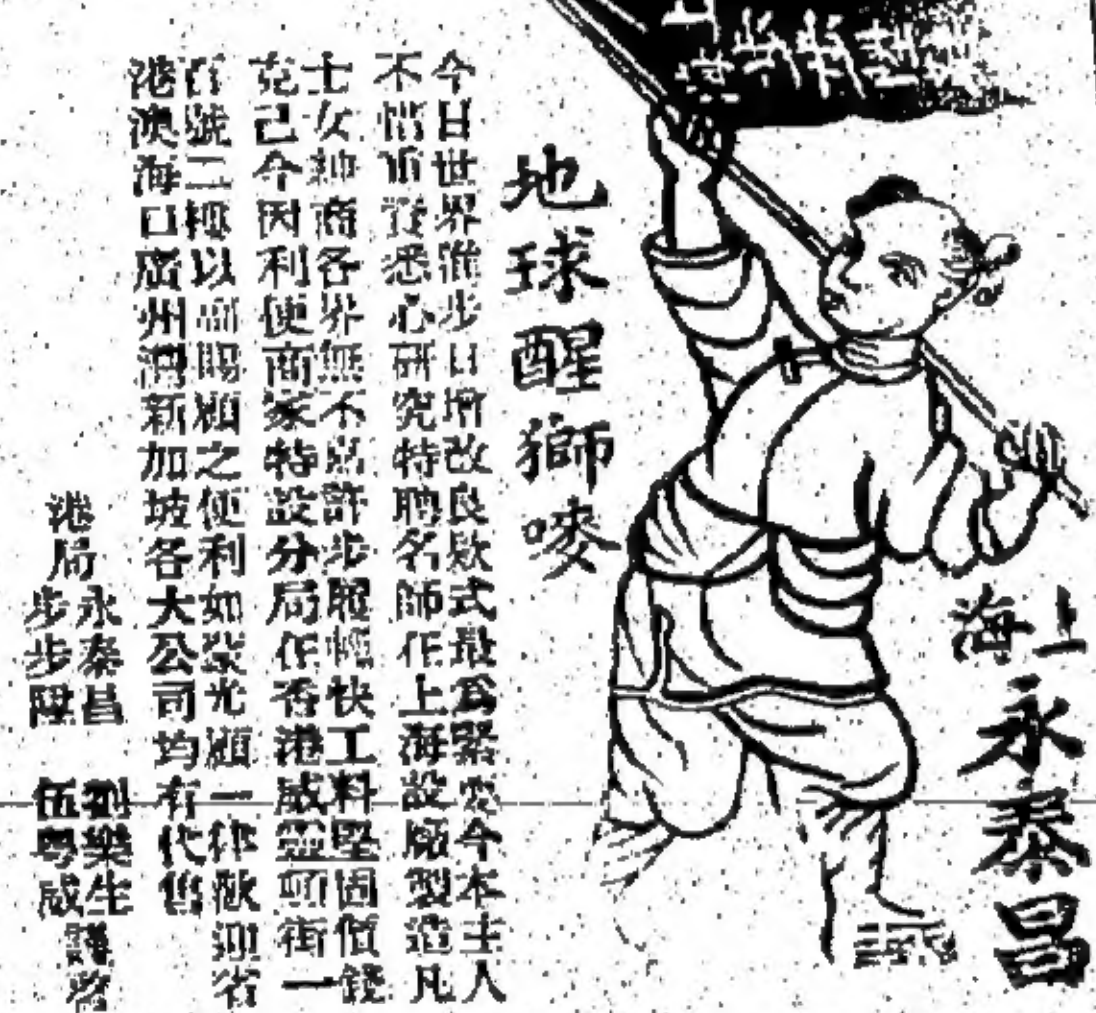 上海永泰昌
地球醒獅嘜
今日世界進步日增改良欵式最為緊要今本主人
不惜重資悉心研究特聘名師在上海設廠製造凡
士女紳商各界無不嘉許步履輕快工料堅固價錢
克己今因利便商家特設分局在香港威靈頓街一
百號二樓以備賜顧之便利如蒙光顧一律歡迎省
港澳海口廣州灣新加坡各大公司均有代售
港局
永泰昌 劉樂生
步步陞 伍粵威
謹啓